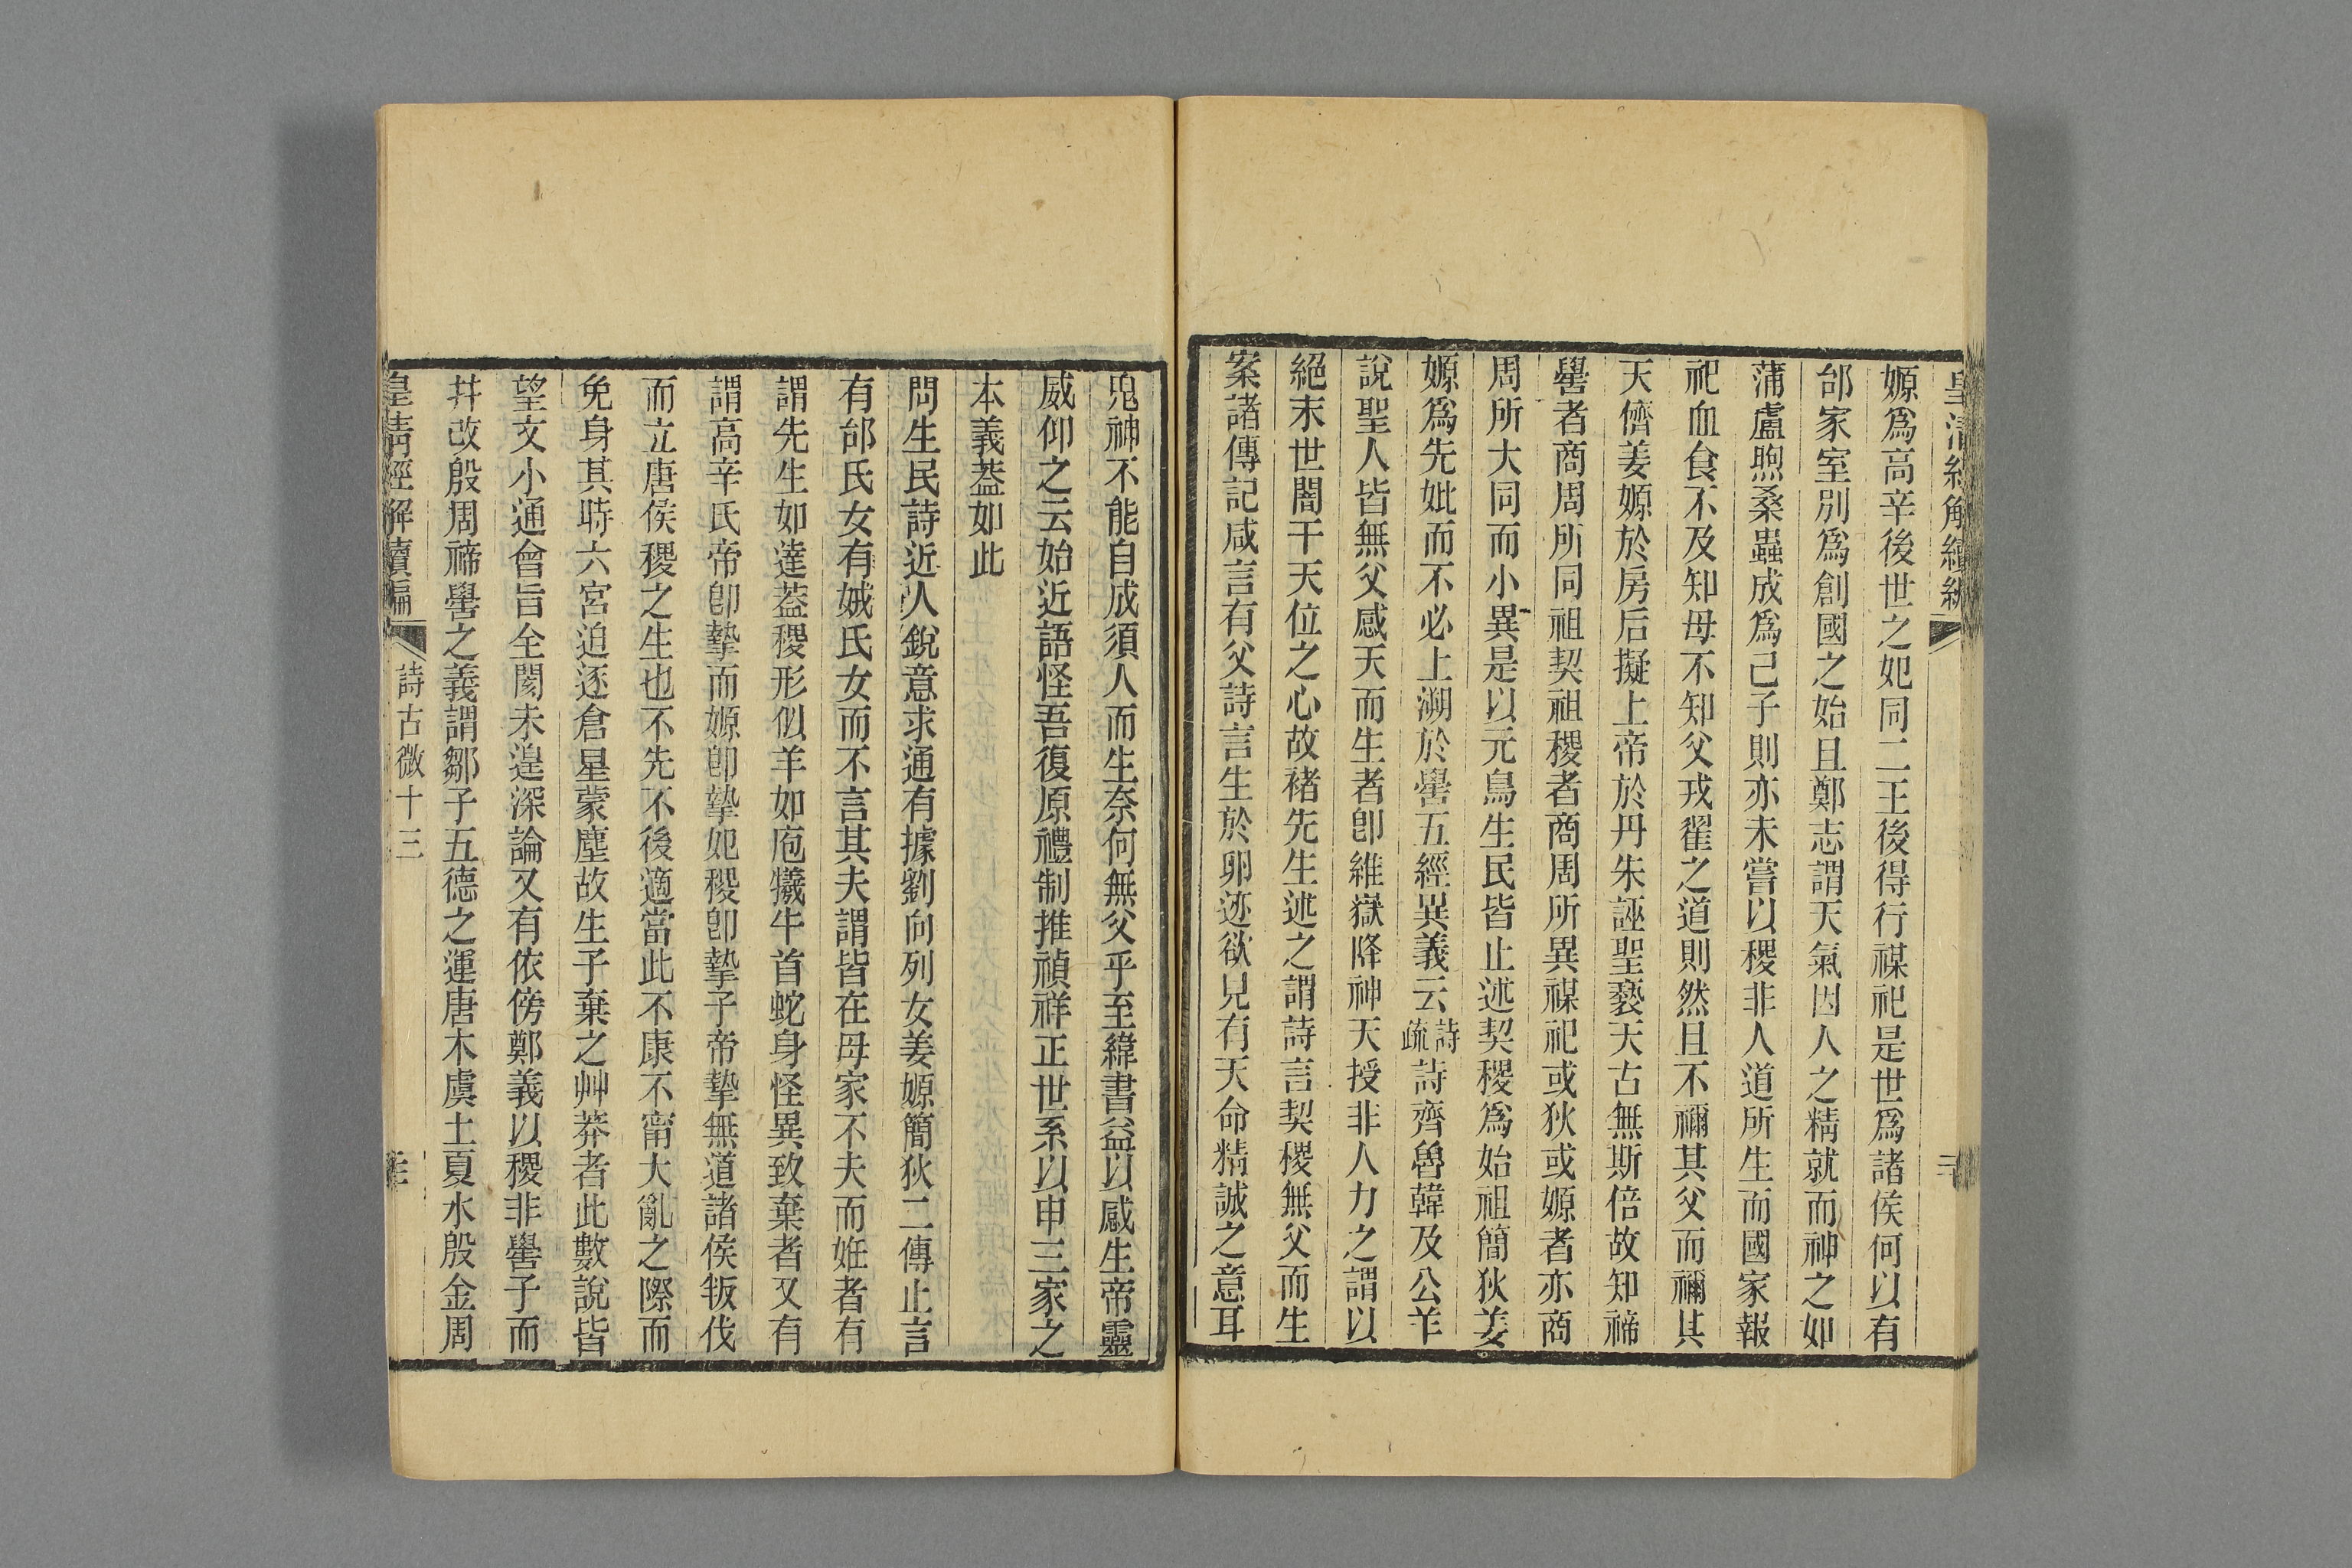 嫄爲高辛後世之妃同二王後得行禖祀是世爲諸侯何以有
邰家室別爲創國之始且鄭志謂天氣因人之精就而神之如
蒲盧煦桑蟲成爲己子則亦未嘗以稷非人道所生而國家報
祀血食不及知母不知父戎翟之道則然且不禰其父而禰其
天儕姜嫄於房后擬上帝於丹朱誣聖褻天古無斯倍故知禘
嚳者商周所同祖契祖稷者商周所異禖祀或狄或嫄者亦商
周所大同而小異是以元鳥生民皆止述契稷爲始祖簡狄姜
嫄爲先妣而不必上溯於嚳五經異義云詩疏詩齊魯韓及公羊
說聖人皆無父感天而生者卽維嶽降神天授非人力之謂以
絕末世闇干天位之心故褚先生述之謂詩言契稷無父而生
案諸傳記咸言有父詩言生於卵迹欲見有天命精誠之意耳
鬼神不能自成須人而生奈何無父乎至緯書益以感生帝靈
威仰之云始近語怪吾復原禮制推禎祥正世系以申三家之
本義葢如此
問生民詩近人銳意求通有據劉向列女姜嫄簡狄二傳止言
有邰氏女有娀氏女而不言其夫謂皆在母家不夫而妊者有
謂先生如達葢稷形似羊如庖犧牛首蛇身怪異致棄者又有
謂高辛氏帝卽摯而嫄卽摯妃稷卽摯子帝摯無道諸侯叛伐
而立唐侯稷之生也不先不後適當此不康不甯大亂之際而
免身其時六宮迫逐倉星蒙塵故生子棄之艸莽者此數說皆
望文小通會旨全閡未遑深論又有依傍鄭義以稷非嚳子而
幷改殷周禘嚳之義謂鄒子五德之運唐木虞土夏水殷金周
皇淸經解續編
詩古微十三